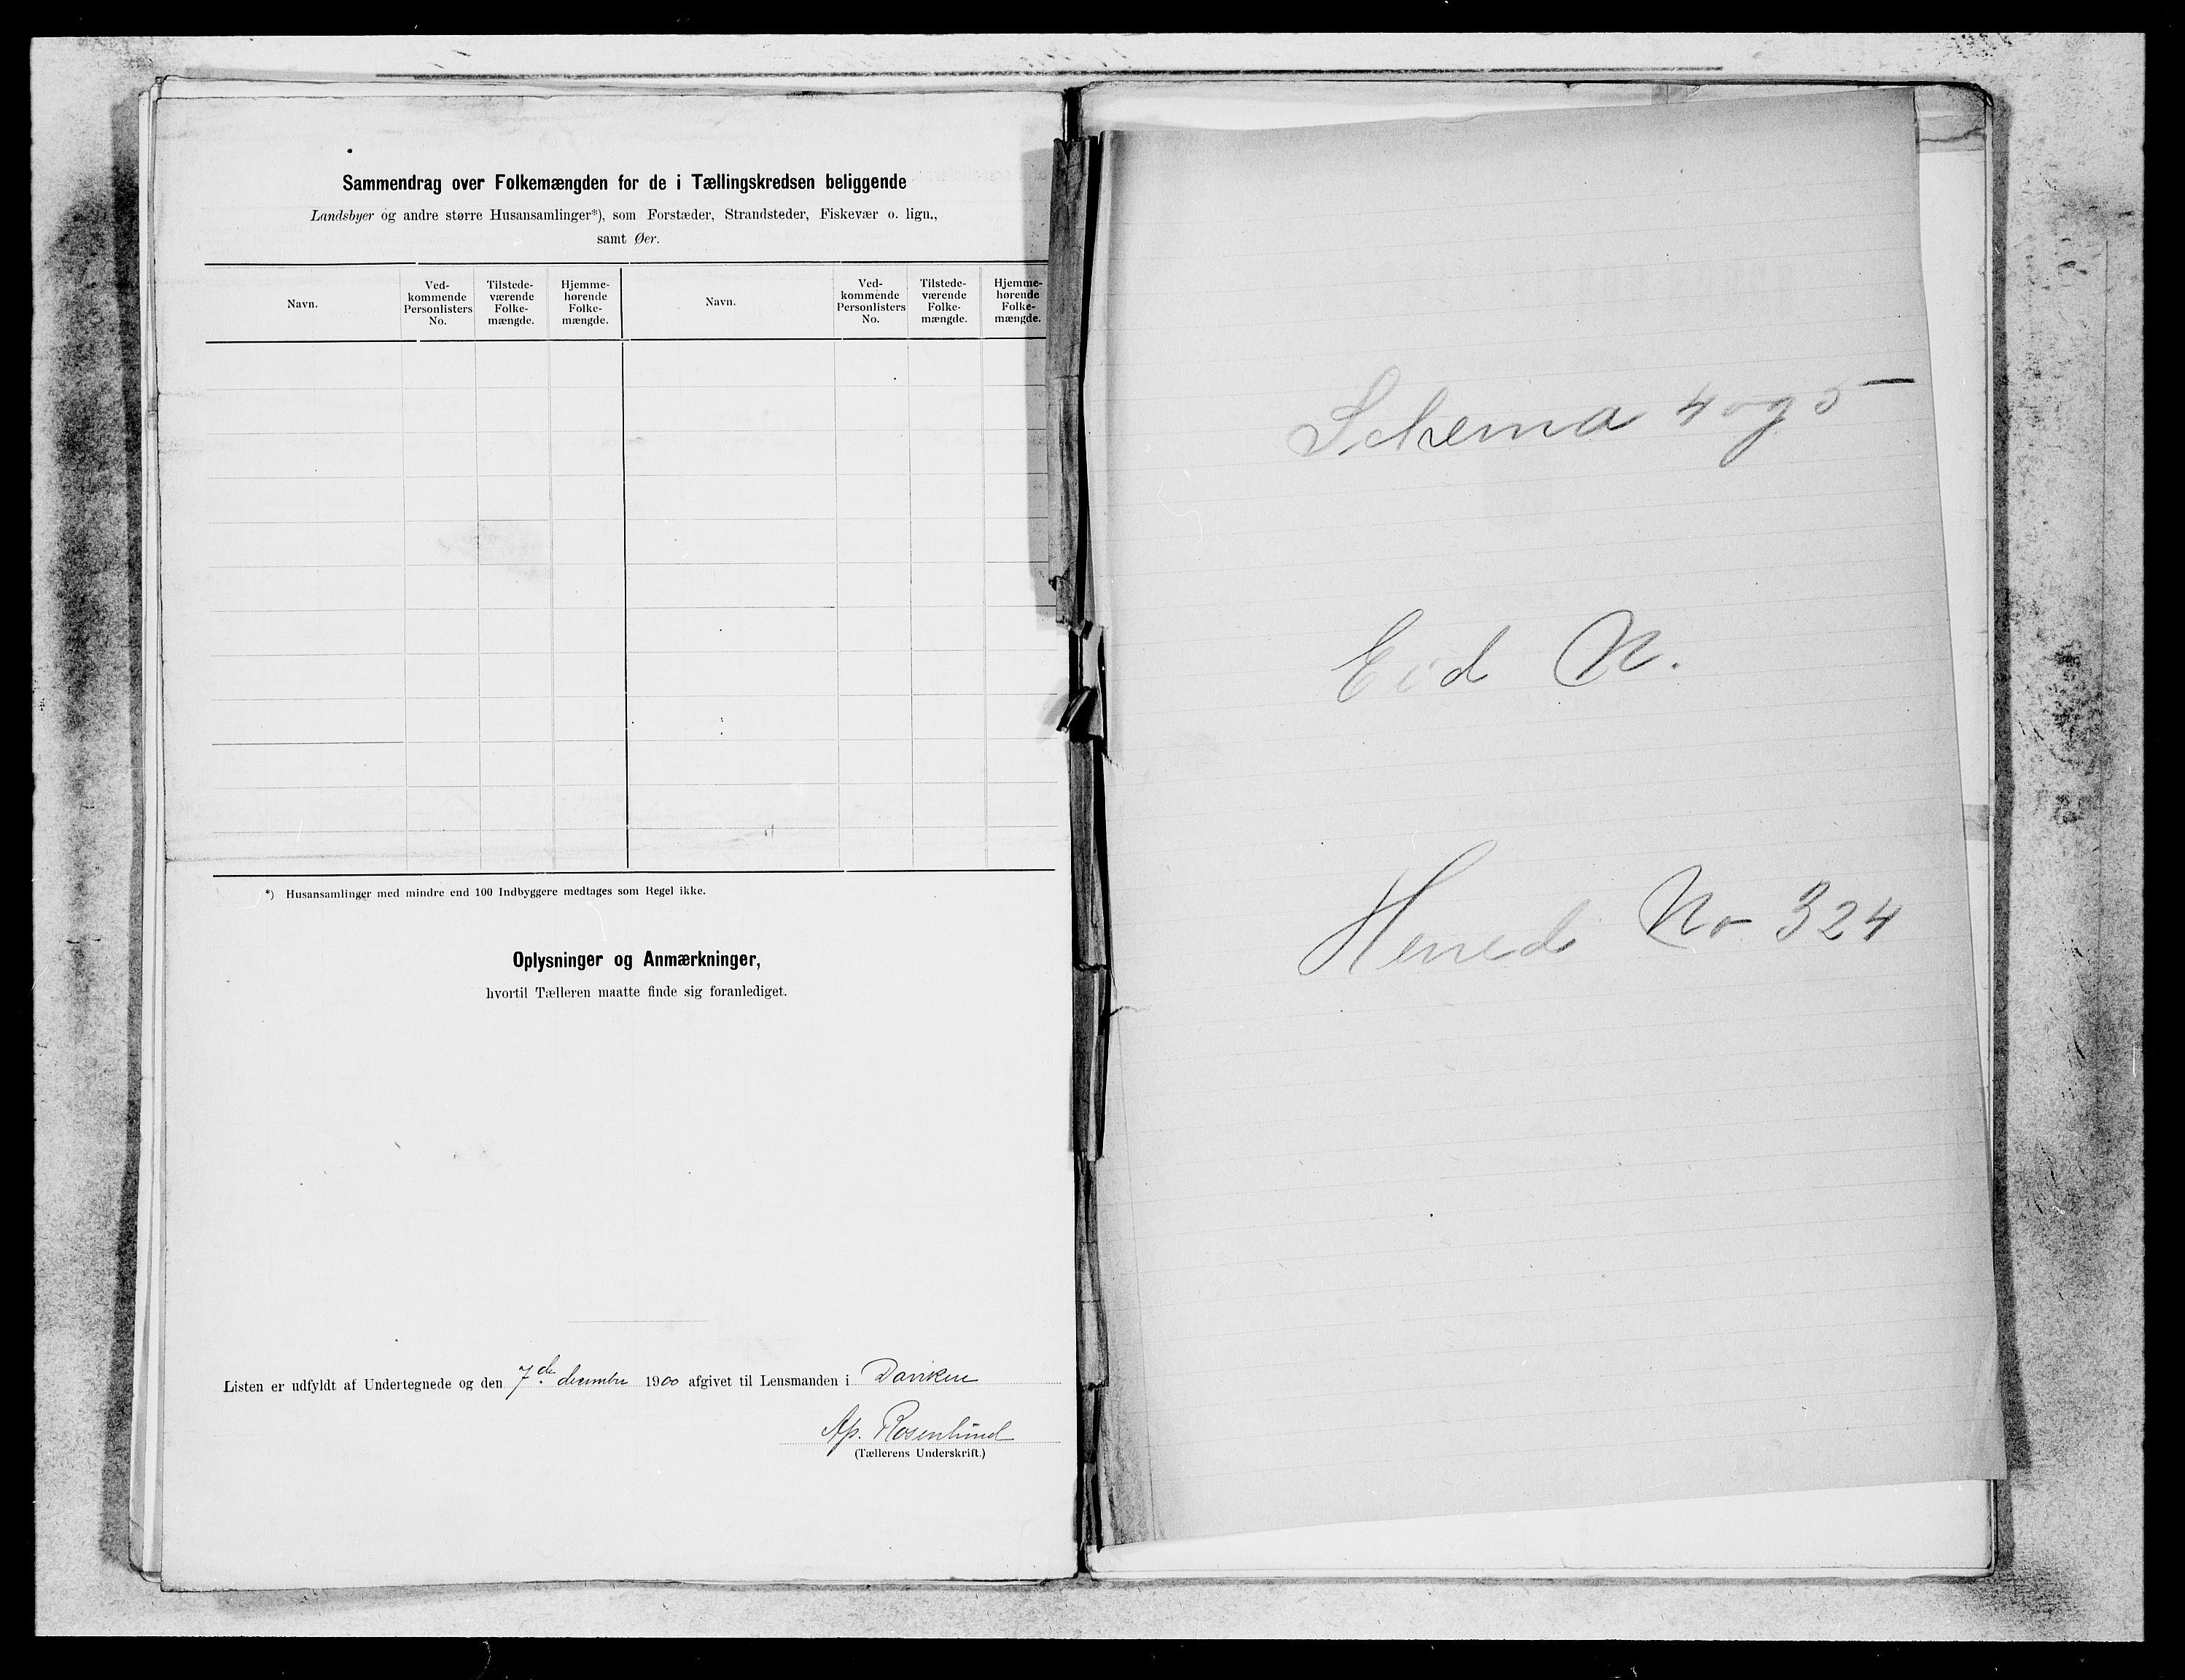 Sammendrag over Folkemængden for de i Tællingskredsen beliggende
Landsbyer og andre større Husansamlinger*), som Forstæder, Strandsteder, Fiskevær o. lign.,
samt Øer.
Navn.
Ved-
kommende
Personlisters
No.
Tilstede-
værende
Folke-
mængde.
Hjemme-
hørende
Folke-
mængde.
Navn.
Ved-
kommende
Personlisters
No.
Tilstede-
værende
Folke-
mængde.
Hjemme-
hørende
Folke-
mængde.
*) Husansamlinger med mindre end 100 Indbyggere medtages som Regel ikke.
Oplysninger og Anmærkninger,
hvortil Tælleren maatte finde sig foranlediget.
Listen er udfyldt af Undertegnede og den 7de december 1900 afgivet til Lensmanden i Daviken
Ap. Rosenlund
(Tællerens Underskrift.)
Schema 4 og 5
Eid N.
Herred No 324